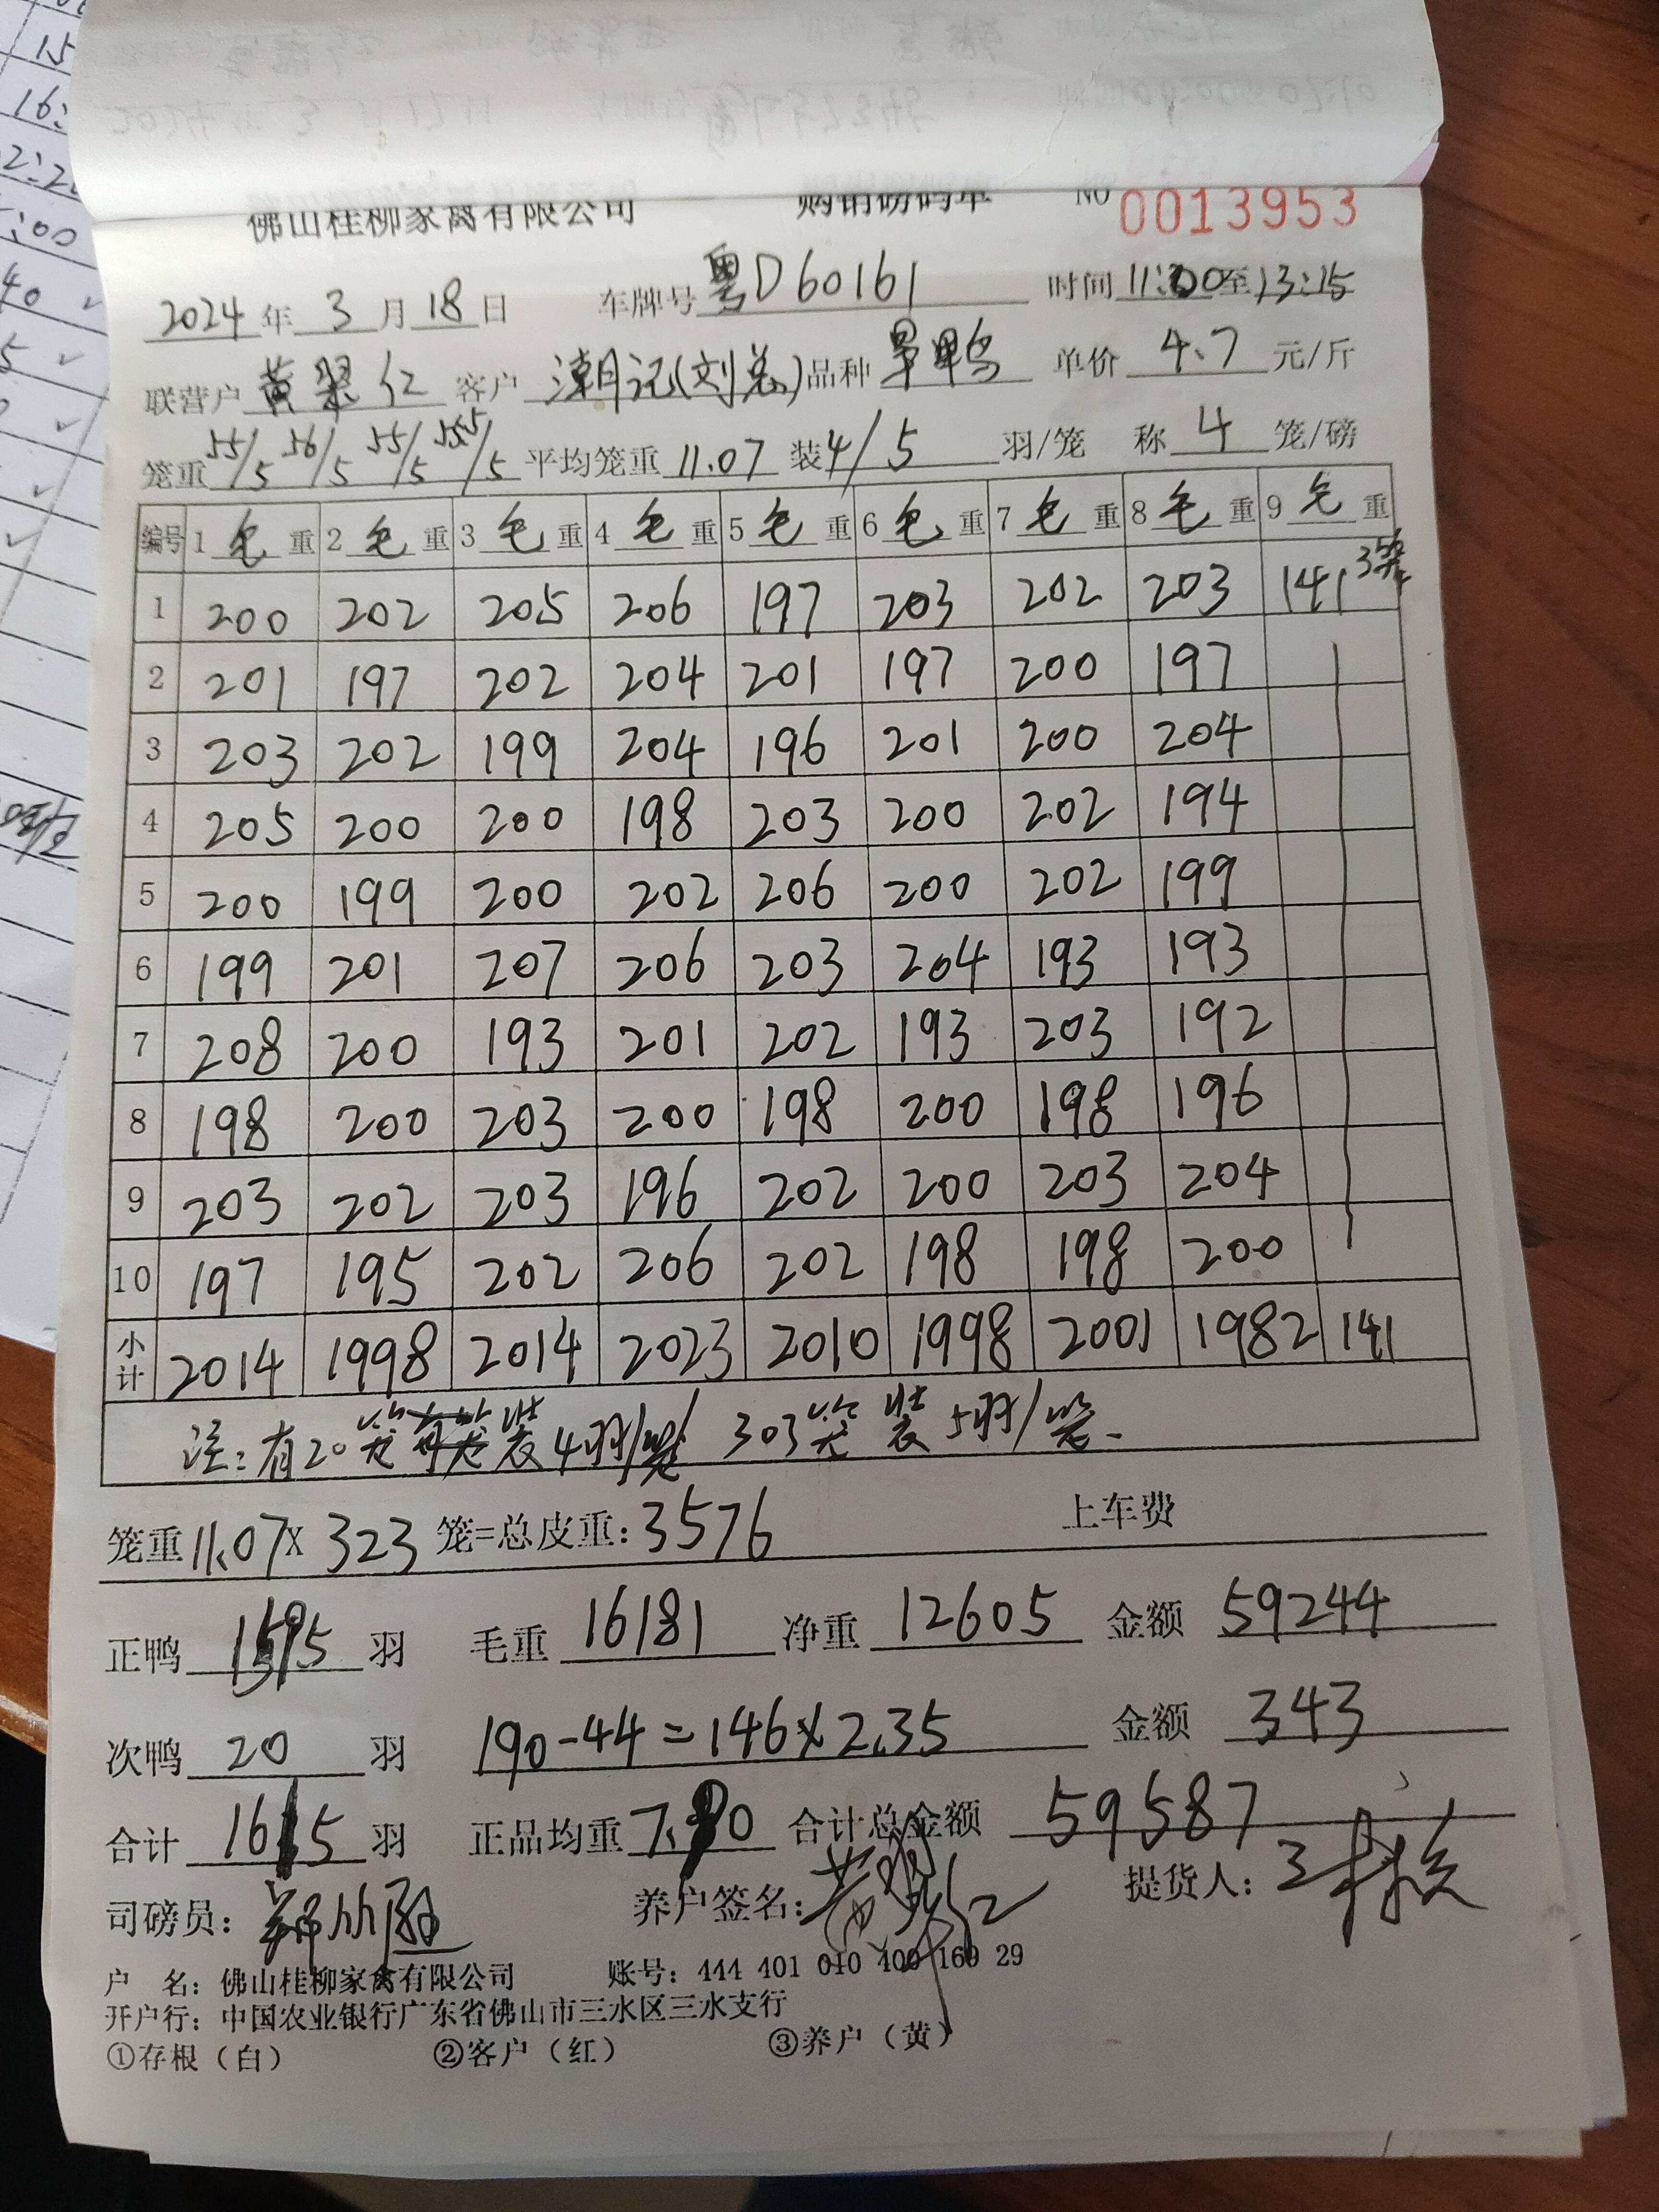 佛山桂柳家禽有限公司 购销磅码单 NO 0013953
2024年3月18日 车牌号粤D60161 时间11:30至13:15
联营户黄翠仁 客户潮记(刘总)品种旱鸭 单价4.7元/斤
笼重55/5 56/5 55/5 55.5/5 平均笼重11.07 装4/5羽/笼 称4笼/磅
编号 1毛重 2毛重 3毛重 4毛重 5毛重 6毛重 7毛重 8毛重 9毛重
1 200 202 205 206 197 203 202 203 141 3笼
2 201 197 202 204 201 197 200 197
3 203 202 199 204 196 201 200 204
4 205 200 200 198 203 200 202 194
5 200 199 200 202 206 200 202 199
6 199 201 207 206 203 204 193 193
7 208 200 193 201 202 193 203 192
8 198 200 203 200 198 200 198 196
9 203 202 203 196 202 200 203 204
10 197 195 202 206 202 198 198 200
小计 2014 1998 2014 2023 2010 1998 2001 1982 141
注:有20笼装4羽/笼 303笼装5羽/笼.
笼重11.07X323笼=总皮重:3576 上车费
正鸭1595羽 毛重16181 净重12605 金额59244
次鸭20羽 190-44=146X2.35 金额343
合计1615羽 正品均重7.90 合计总金额59587
司磅员: 养户签名:黄翠仁 提货人:
户 名:佛山桂柳家禽有限公司 账号:444 401 040 400 160 29
开户行:中国农业银行广东省佛山市三水区三水支行
①存根(白) ②客户(红) ③养户(黄)